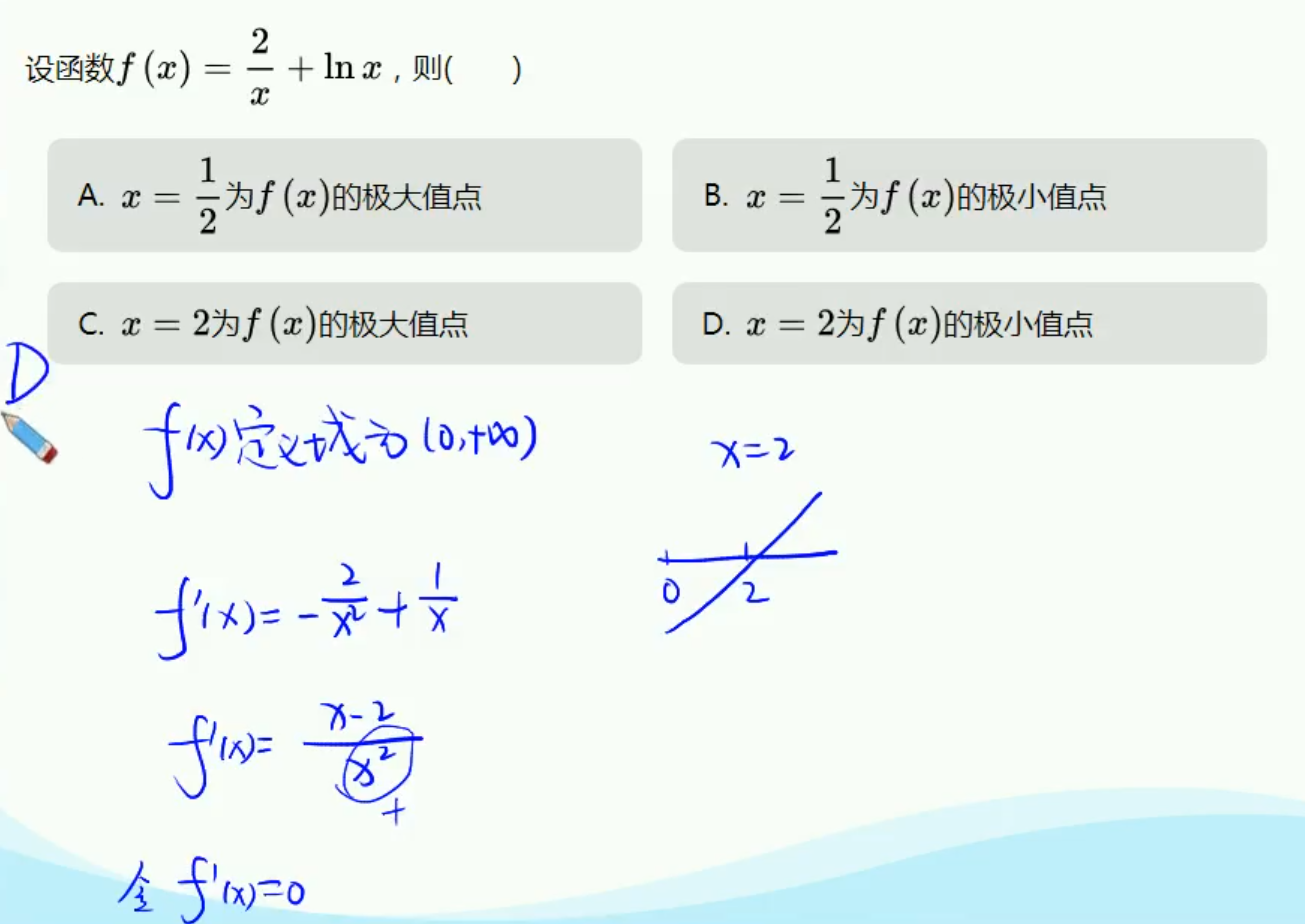 设函数f(x) = 2/x + ln x，则(  )
A. x = 1/2为f(x)的极大值点
B. x = 1/2为f(x)的极小值点
C. x = 2为f(x)的极大值点
D. x = 2为f(x)的极小值点
D
f(x)定义域为(0,+∞)
x=2
0 2
f'(x)= -2/x² + 1/x
f'(x)= (x-2)/x²
+
令 f'(x)=0